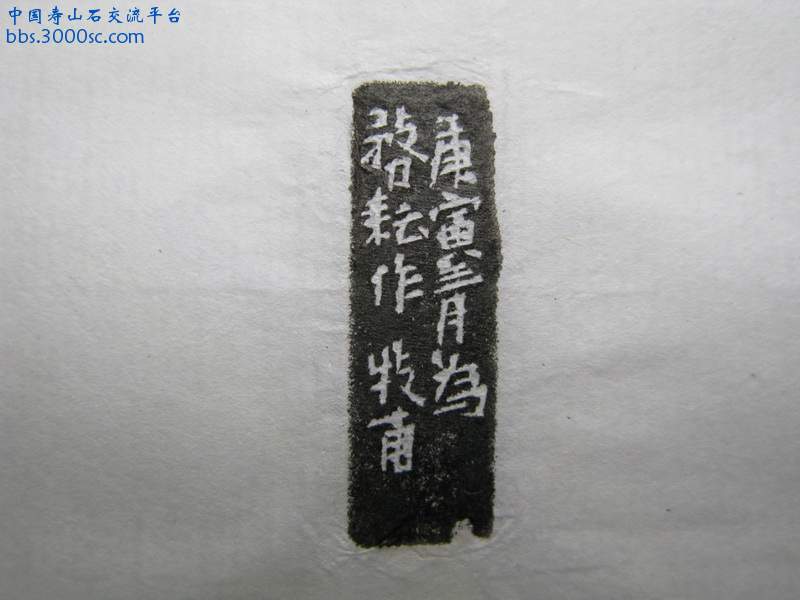 中国寿山石交流平台
bbs.3000sc.com
庚寅月為
務耘作 牧甫